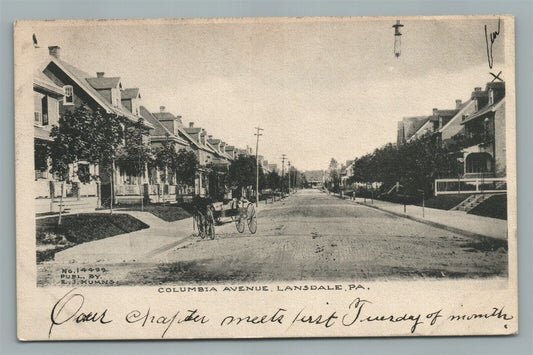 No 14499
PUBL. BY
E.J. KUHNS
COLUMBIA AVENUE, LANSDALE, PA.
Our chapter meets first Tuesday of month